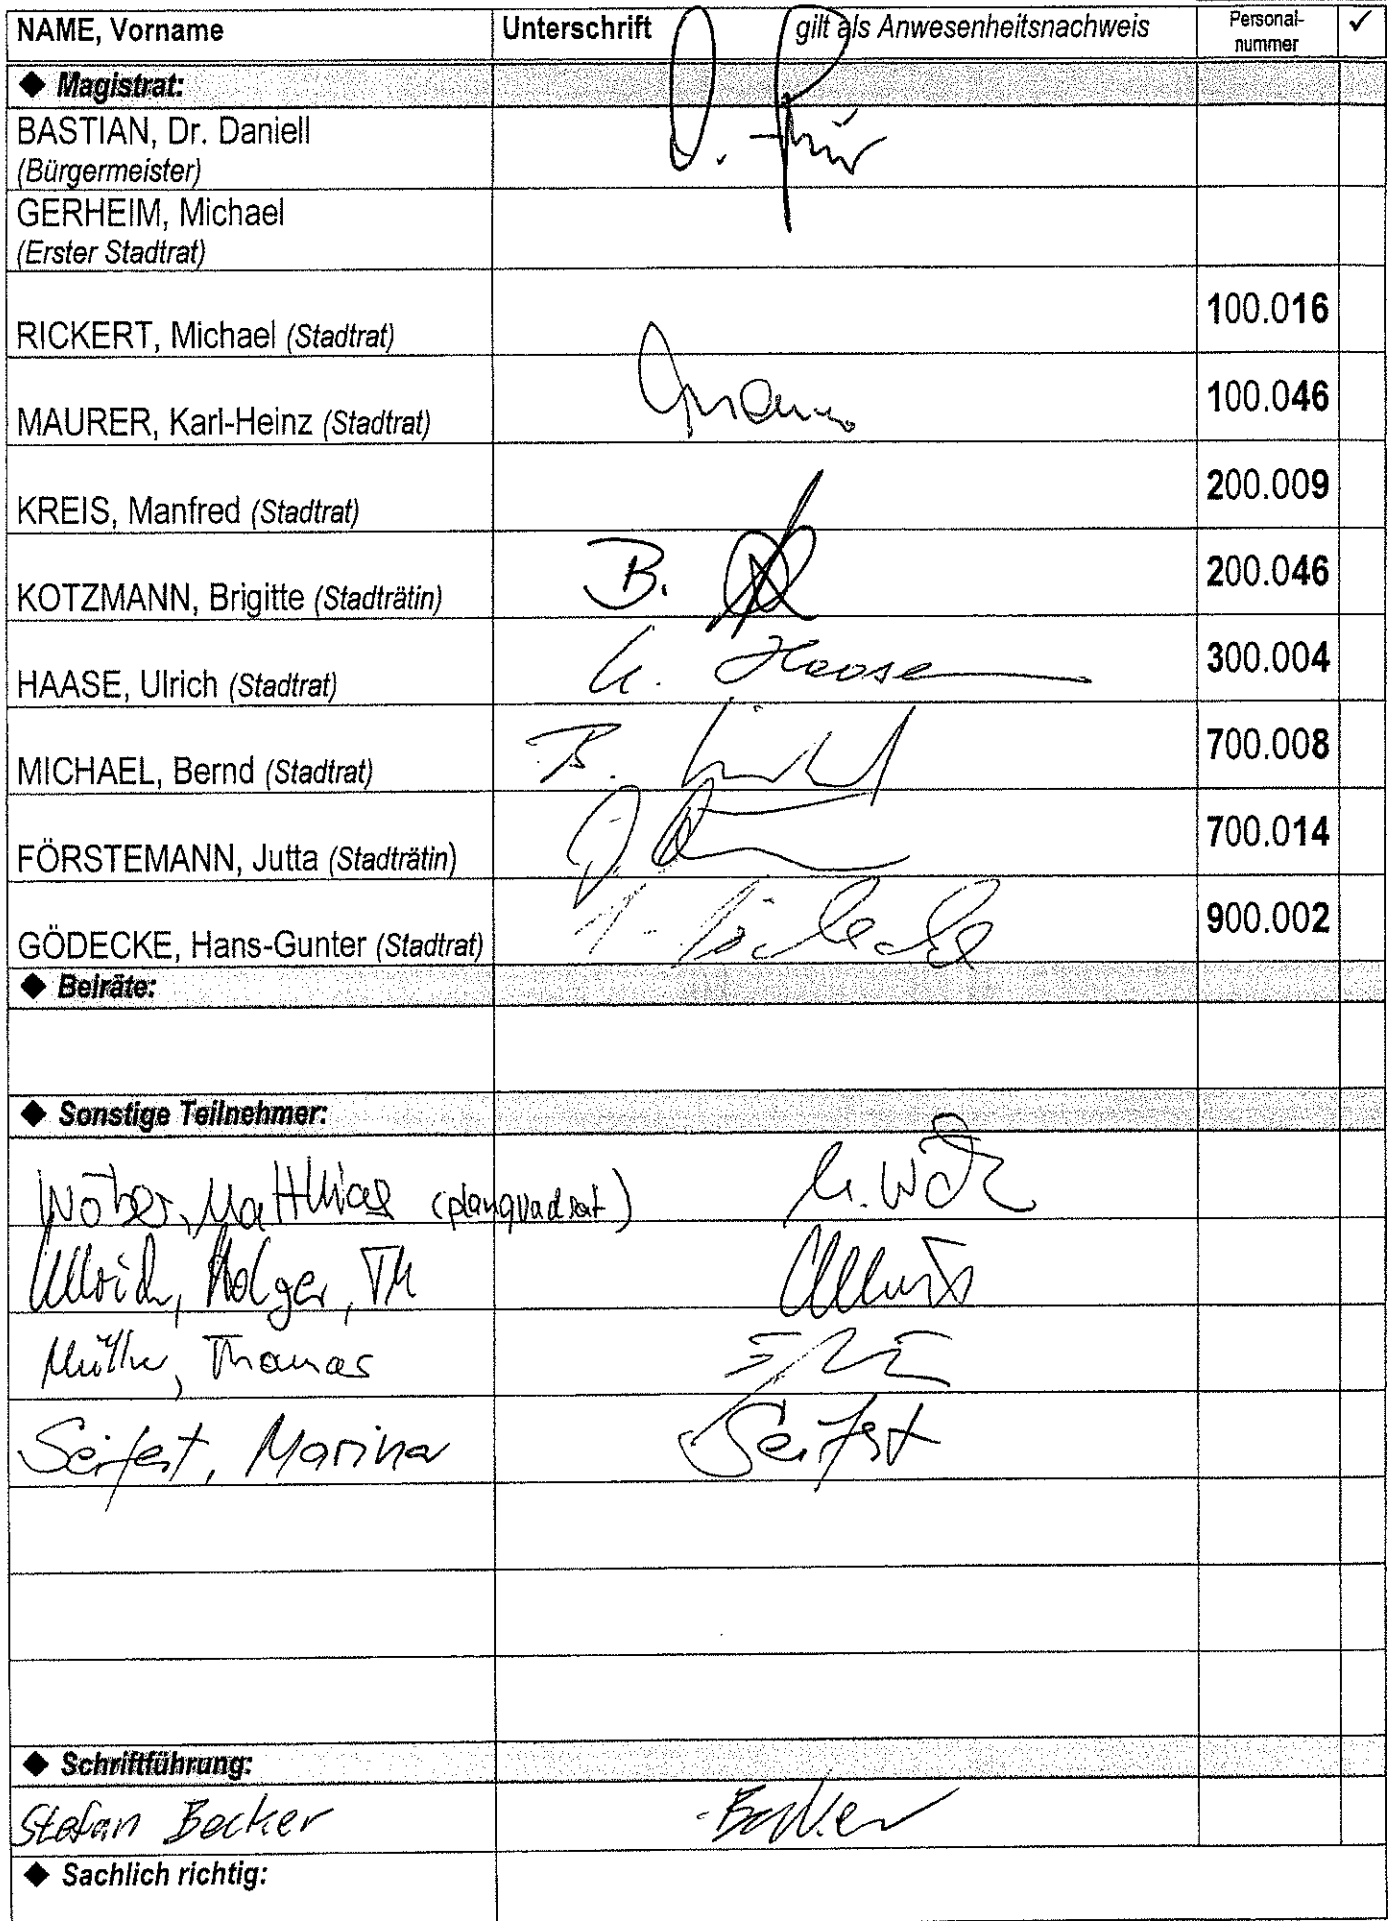 NAME, Vorname Unterschrift gilt als Anwesenheitsnachweis Personal-nummer ✓
◆ Magistrat:
BASTIAN, Dr. Daniell
(Bürgermeister)
GERHEIM, Michael
(Erster Stadtrat)
RICKERT, Michael (Stadtrat) 100.016
MAURER, Karl-Heinz (Stadtrat) 100.046
KREIS, Manfred (Stadtrat) 200.009
KOTZMANN, Brigitte (Stadträtin) B. 200.046
HAASE, Ulrich (Stadtrat) U. Haase 300.004
MICHAEL, Bernd (Stadtrat) B. 700.008
FÖRSTEMANN, Jutta (Stadträtin) 700.014
GÖDECKE, Hans-Gunter (Stadtrat) Gödecke 900.002
◆ Beiräte:
◆ Sonstige Teilnehmer:
Matthias (planquadrat)
Ullrich, Holger
Müller, Thomas
Seifert, Marina Seifert
◆ Schriftführung:
Stefan Becker Becker
◆ Sachlich richtig: